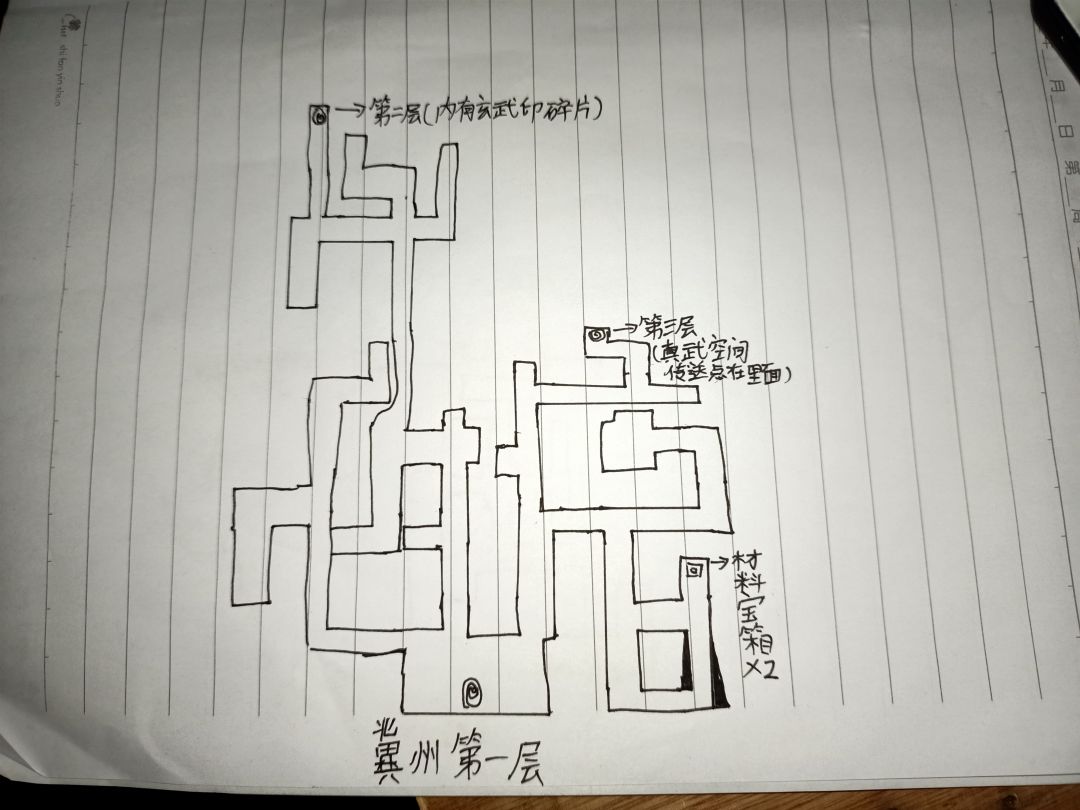 第二层(内有玄武印碎片)
第三层
(真武空间
传送点在里面)
材
料
宝
箱
×2
冀州第一层
月
日
第
shi fan yin shua